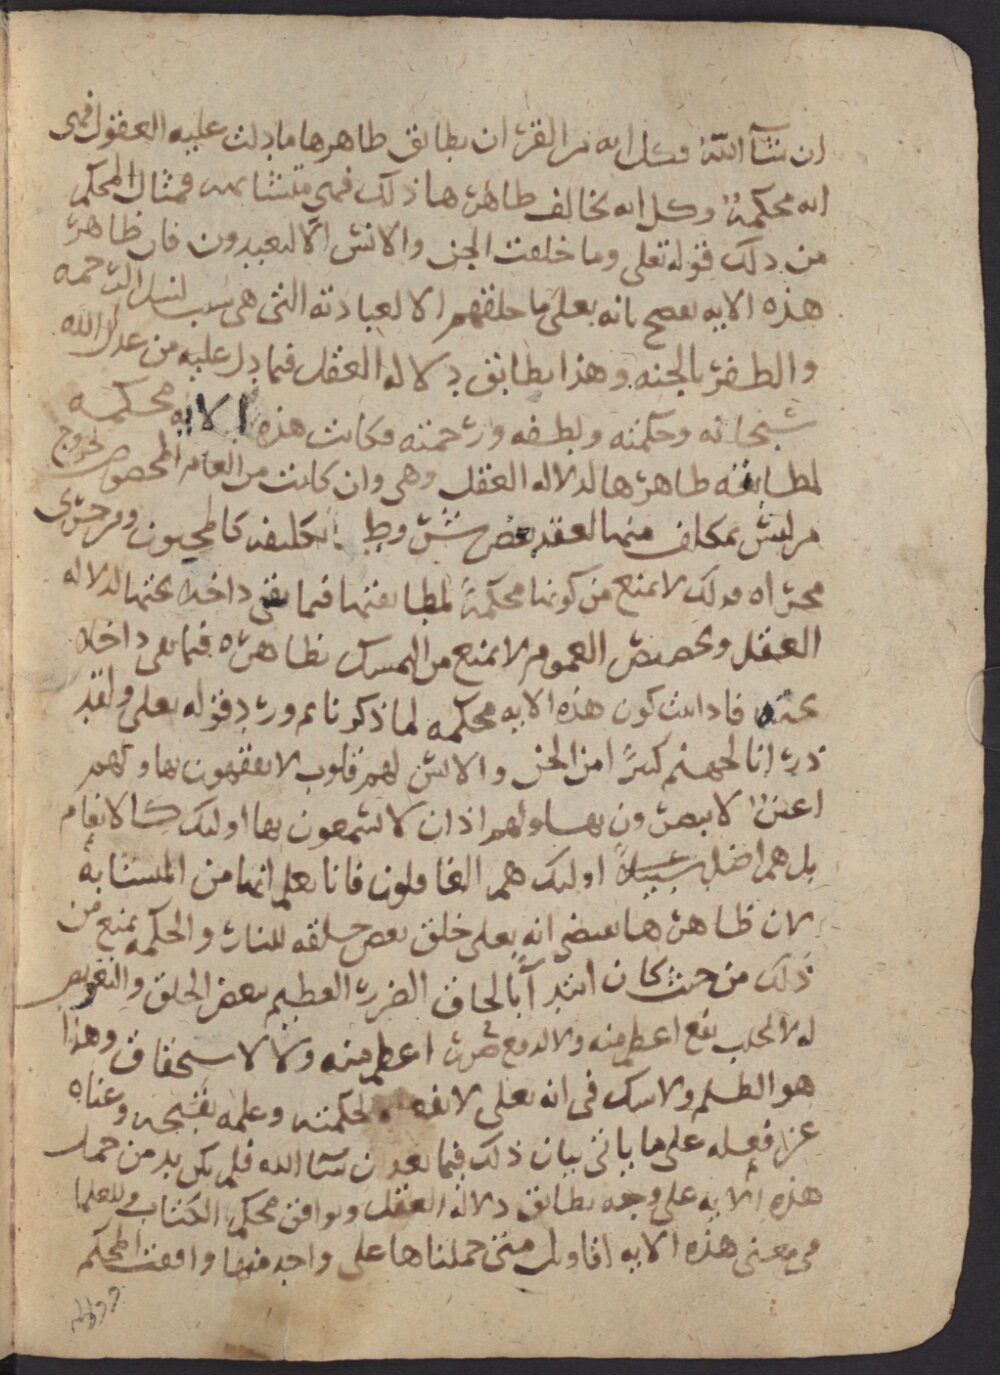 ان شآ الله وكل ايه من القران يطابق ظاهرها ما دلت عليه العقول فهى
ايه محكمة وكل ايه يخالف ظاهرها ذلك فهي متشابهه فمثال المحكم
من ذلك قوله تعلى وما خلقت الجن والانس الا ليعبدون فان ظاهر
هذه الايه يفصح بانه تعلى ما خلقهم الا لعبادته التى هى سبب لنيل الرحمه
والظفر بالجنه وهذا يطابق دلاله العقل فيما دل عليه من عدل الله
سبحانه وحكمته ولطفه ورحمته فكانت هذه الايه محكمه
لمطابقه ظاهرها لدلاله العقل وهى وان كانت من العام المخصوص لخروج
من ليس بمكلف منها لفقد بعض شروط التكليف كالمجنون ومن جرى
مجراه فذلك لا يمنع من كونها محكمة لمطابقتها فيما بقى داخلا تحتها لدلاله
العقل وتخصيص العموم لا يمنع من التمسك بظاهره فيما بقى داخلا
تحته فاذا ثبت كون هذه الايه محكمه لما ذكرنا ثم ورد قوله تعلى ولقد
ذرانا لجهنم كثيرا من الجن والانس لهم قلوب لا يفقهون بها ولهم
اعين لا يبصرون بها ولهم اذان لا يسمعون بها اوليك كالانعام
بل هم اضل سبيلا اوليك هم الغافلون فانا نعلم انها من المتشابه
لان ظاهرها يقتضي انه تعلى خلق بعض خلقه للنار والحكمه تمنع من
ذلك من حيث كان ابتدآ بالحاق الضرر العظيم ببعض الخلق والتعريض
له لا لجلب نفع اعظم منه ولا لدفع ضرر اعظم منه ولا لاستحقاق وهذا
هو الظلم ولا شك فى انه تعلى لا يفعله لحكمته وعلمه بقبحه وغناه
عن فعله على ما ياتى بيان ذلك فيما بعد ان شآ الله فلم يكن بد من حمل
هذه الايه على وجه يطابق دلاله العقل ويوافق محكم الكتاب وللعلما
في معنى هذه الايه اقاويل متى حملناها على واحد منها وافقت المحكم